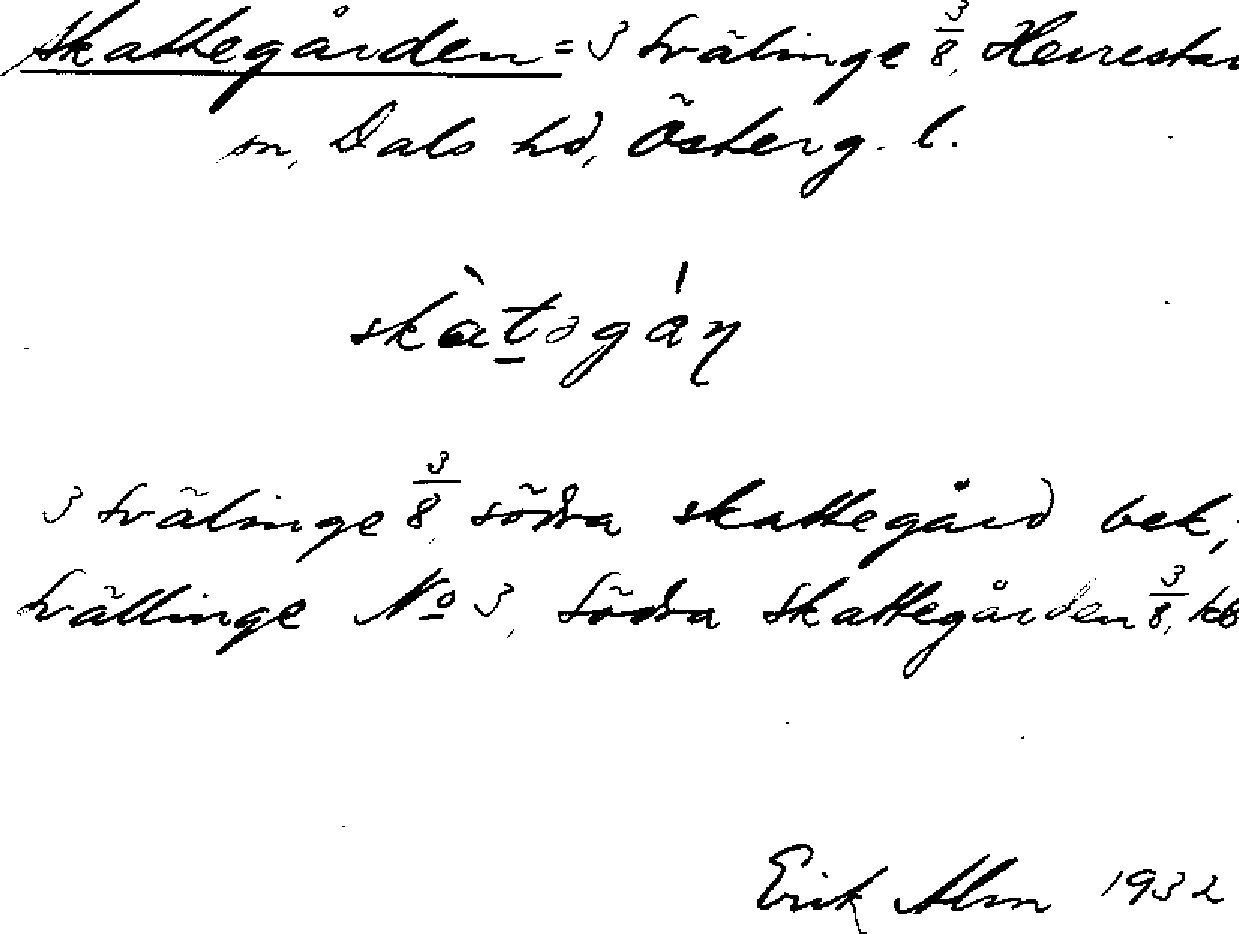 Skattegården = 3 Svälinge 3/8, Herrestad
sn, Dals hd, Österg. l.
skàt̠əgán
3 Svälinge 3/8 södra skattegård bek;
Svällinge No 3, Södra Skattegården 3/8, kb
Erik Alm 1932